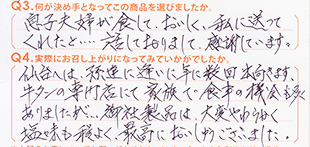 Q3.何が決め手となってこの商品を選びましたか。
息子夫婦が食して、おいしく、私に送って
くれたと…話しておりまして、感謝しています。
Q4.実際にお召し上がりになってみていかがでしたか。
仙台へは、孫達に逢いに年に数回出向きます、
牛タンの専門店にて家族で食事の機会も多々
ありましたが…、御社製品は、大変やわらかく
塩味も程よく、最高においしゅうございました。